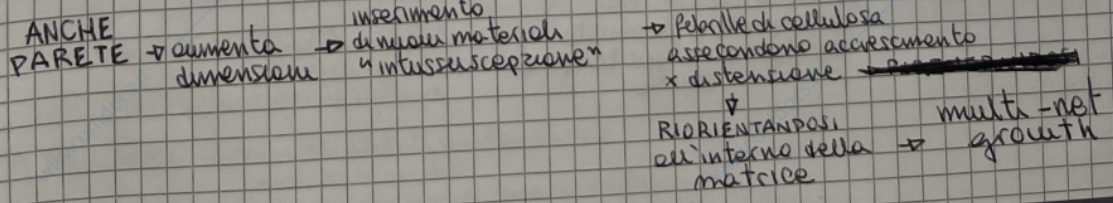 ANCHE
PARETE → aumenta
dimensioni
→ inserimento
di nuovi materiali
"intussuscepzione"
→ febrille di cellulosa
assecondano accrescimento
x distensione
↓
RIORIENTANDOSI
all'interno della
matrice
→ multi-net
growth